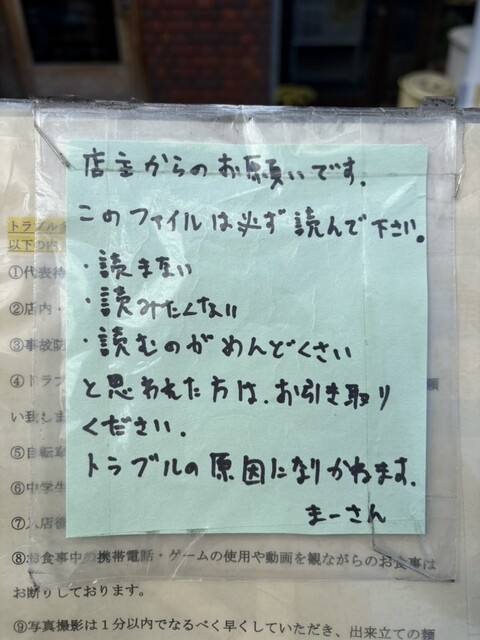 店主からのお願いです.
このファイルは必ず読んで下さい。
・読まない
・読みたくない
・読むのがめんどくさい
と思われた方は、お引き取り
ください.
トラブルの原因になりかねます.
まーさん
トラブル
以下の内
①代表待
②店内・
③事故防
④トラブ
い致しま
⑤自転
⑥中学生
⑦入店後
⑧お食事中の携帯電話・ゲームの使用や動画を観ながらのお食事は
お断りしております。
⑨写真撮影は1分以内でなるべく早くしていただき、出来立ての麺